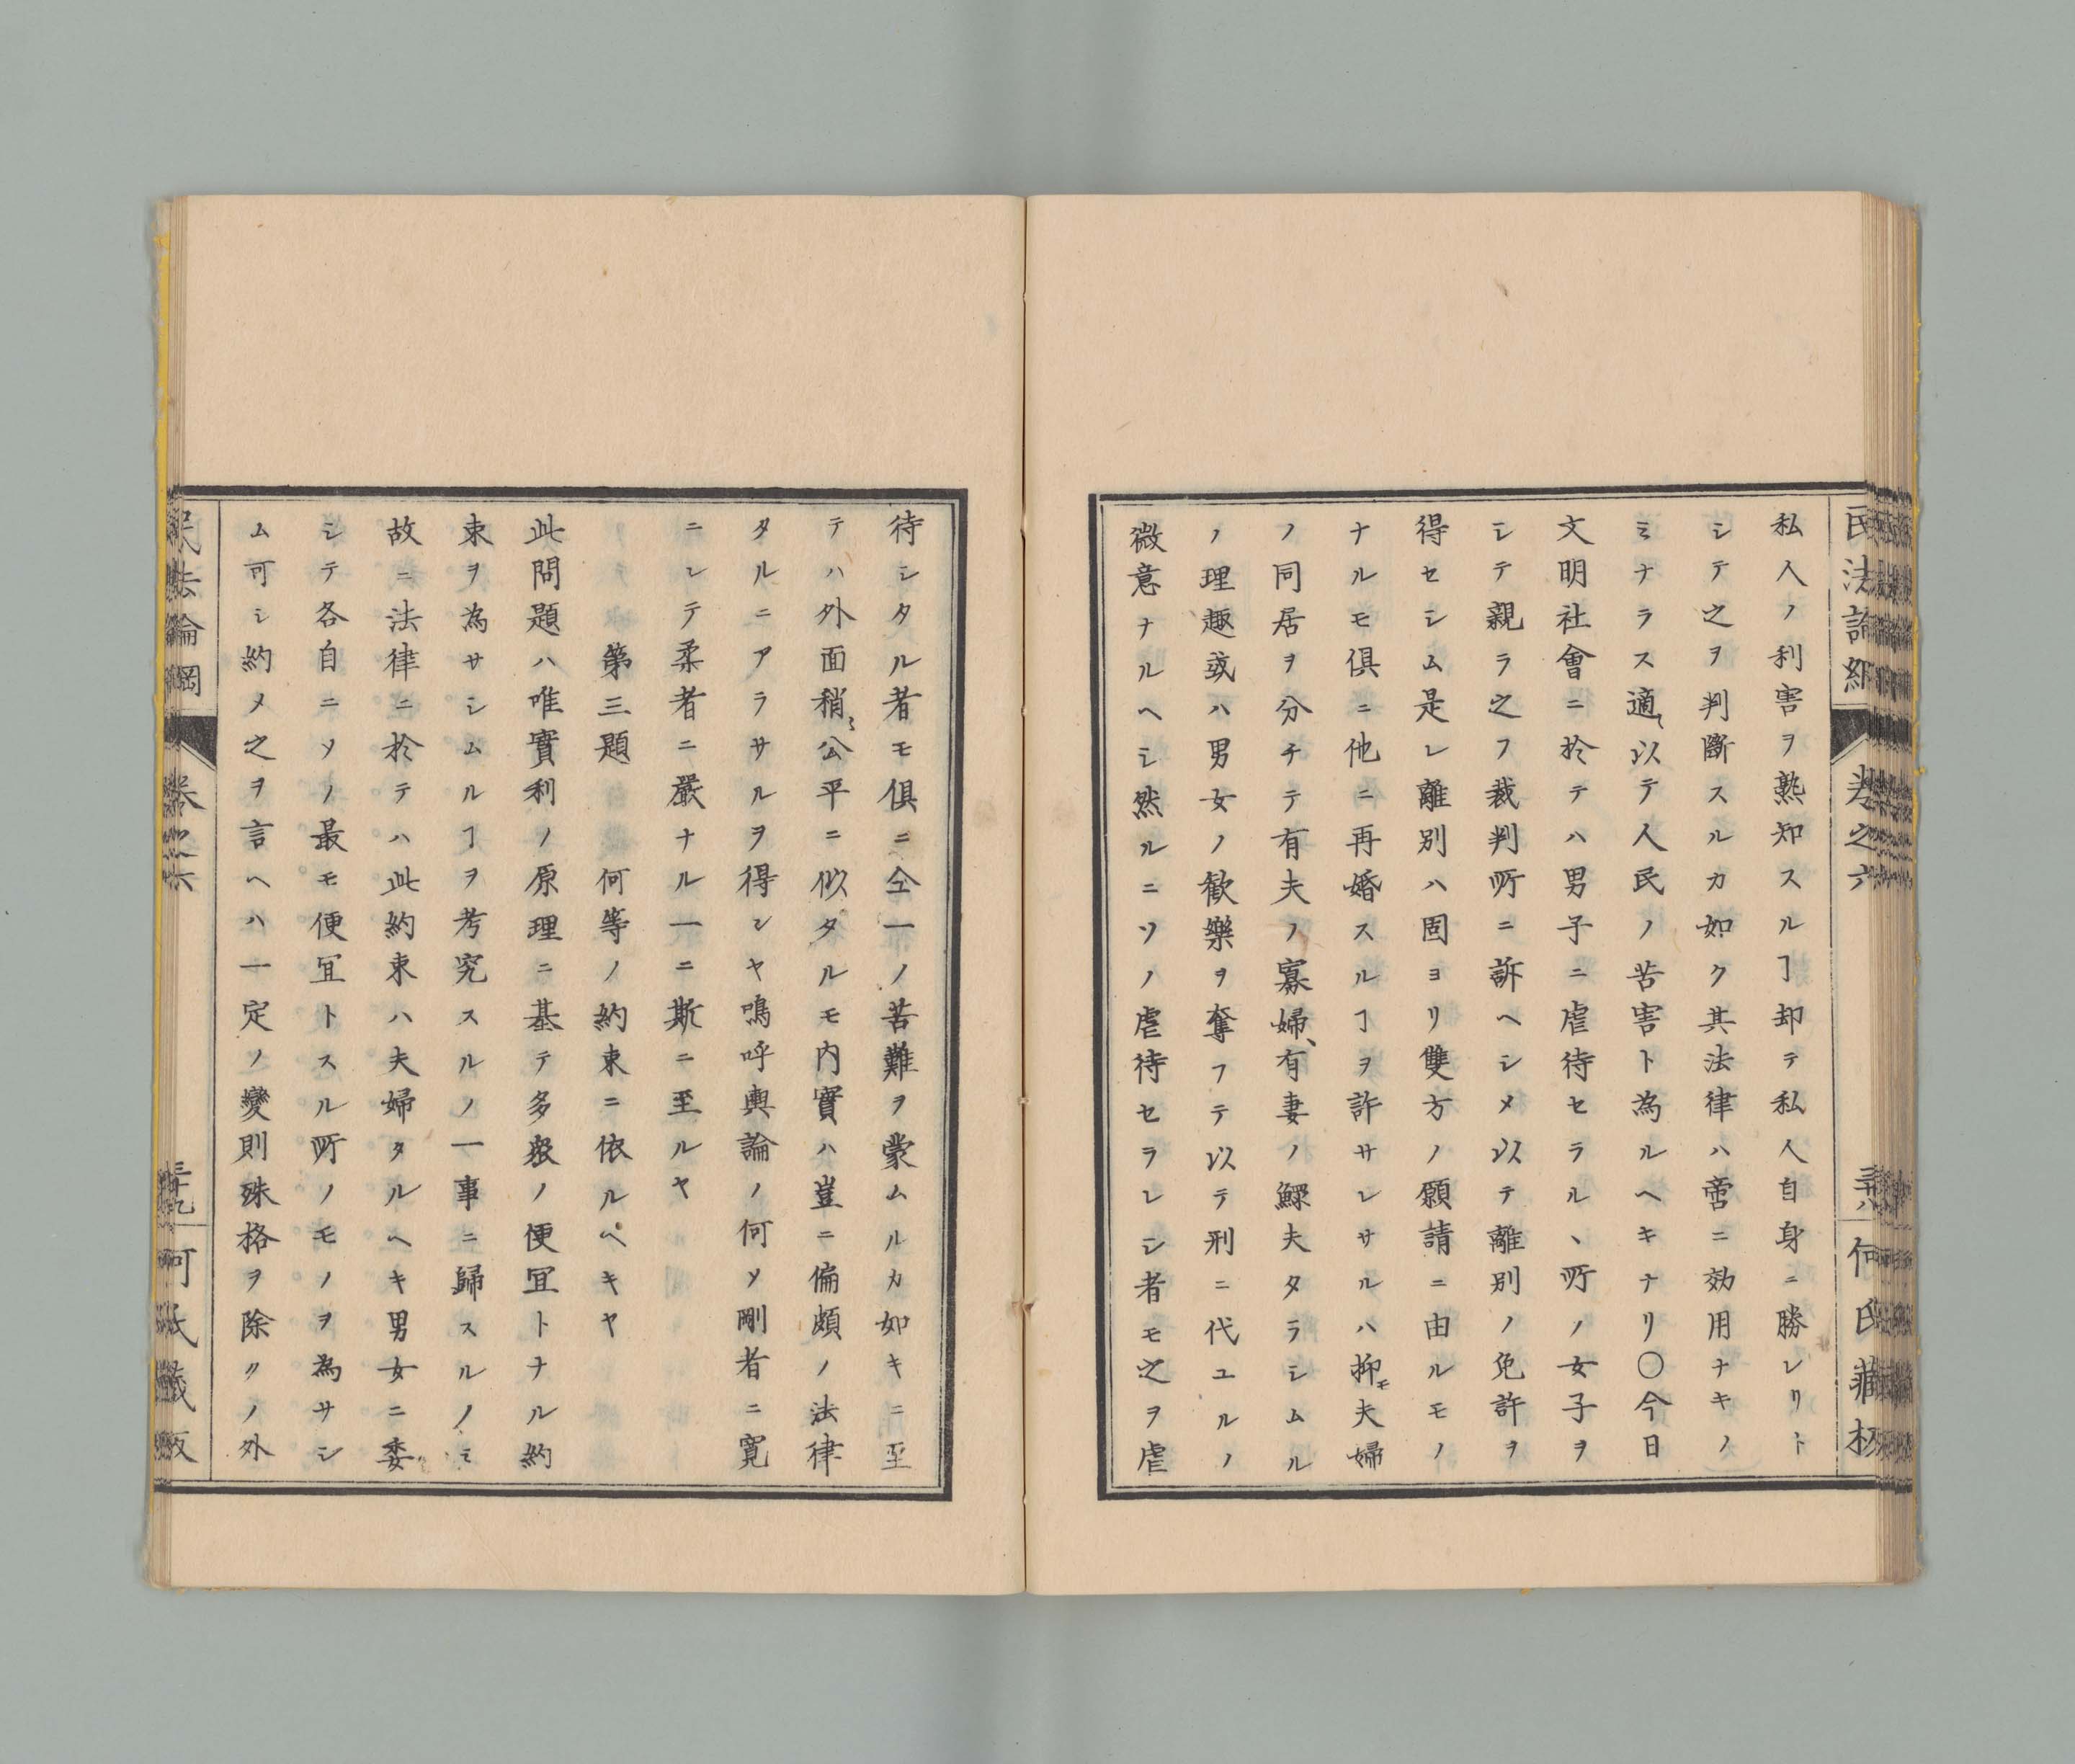 民法論綱
卷之六
三十八
何氏藏板
私人ノ利害ヲ熟知スルヿ却テ私人自身ニ勝レリト
シテ之ヲ判斷スルカ如ク其法律ハ啻ニ効用ナキノ
ミナラス適〻以テ人民ノ苦害ト為ルヘキナリ〇今日
文明社會ニ於テハ男子ニ虐待セラル、所ノ女子ヲ
シテ親ラ之フ裁判所ニ訴ヘシメ以テ離別ノ免許ヲ
得セシム是レ離別ハ固ヨリ雙方ノ願請ニ由ルモノ
ナルモ俱ニ他ニ再婚スルヿヲ許サレサルハ抑モ夫婦
ノ同居ヲ分チテ有夫ノ寡婦、有妻ノ鰥夫タラシムル
ノ理趣或ハ男女ノ歓樂ヲ奪フテ以テ刑ニ代ユルノ
微意ナルヘシ然ルニソノ虐待セラレシ者モ之ヲ虐
待シタル者モ俱ニ仝一ノ苦難ヲ蒙ムルカ如キニ至
テハ外面稍〻公平ニ似タルモ内實ハ豈ニ偏頗ノ法律
タルニアラサルヲ得ンヤ嗚呼輿論ノ何ソ剛者ニ寛
ニレテ柔者ニ嚴ナル一ニ斯ニ至ルヤ
第三題　何等ノ約束ニ依ルベキヤ
此問題ハ唯實利ノ原理ニ基テ多衆ノ便冝トナル約
束ヲ為サシムルヿヲ考究スルノ一事ニ歸スルノミ
故ニ法律ニ於テハ此約束ハ夫婦タルヘキ男女ニ委
シテ各自ニソノ最モ便冝トスル所ノモノヲ為サシ
ム可シ約メ之ヲ言ヘハ一定ノ變則殊格ヲ除クノ外
民法論綱
卷之六
三十九
何氏藏板